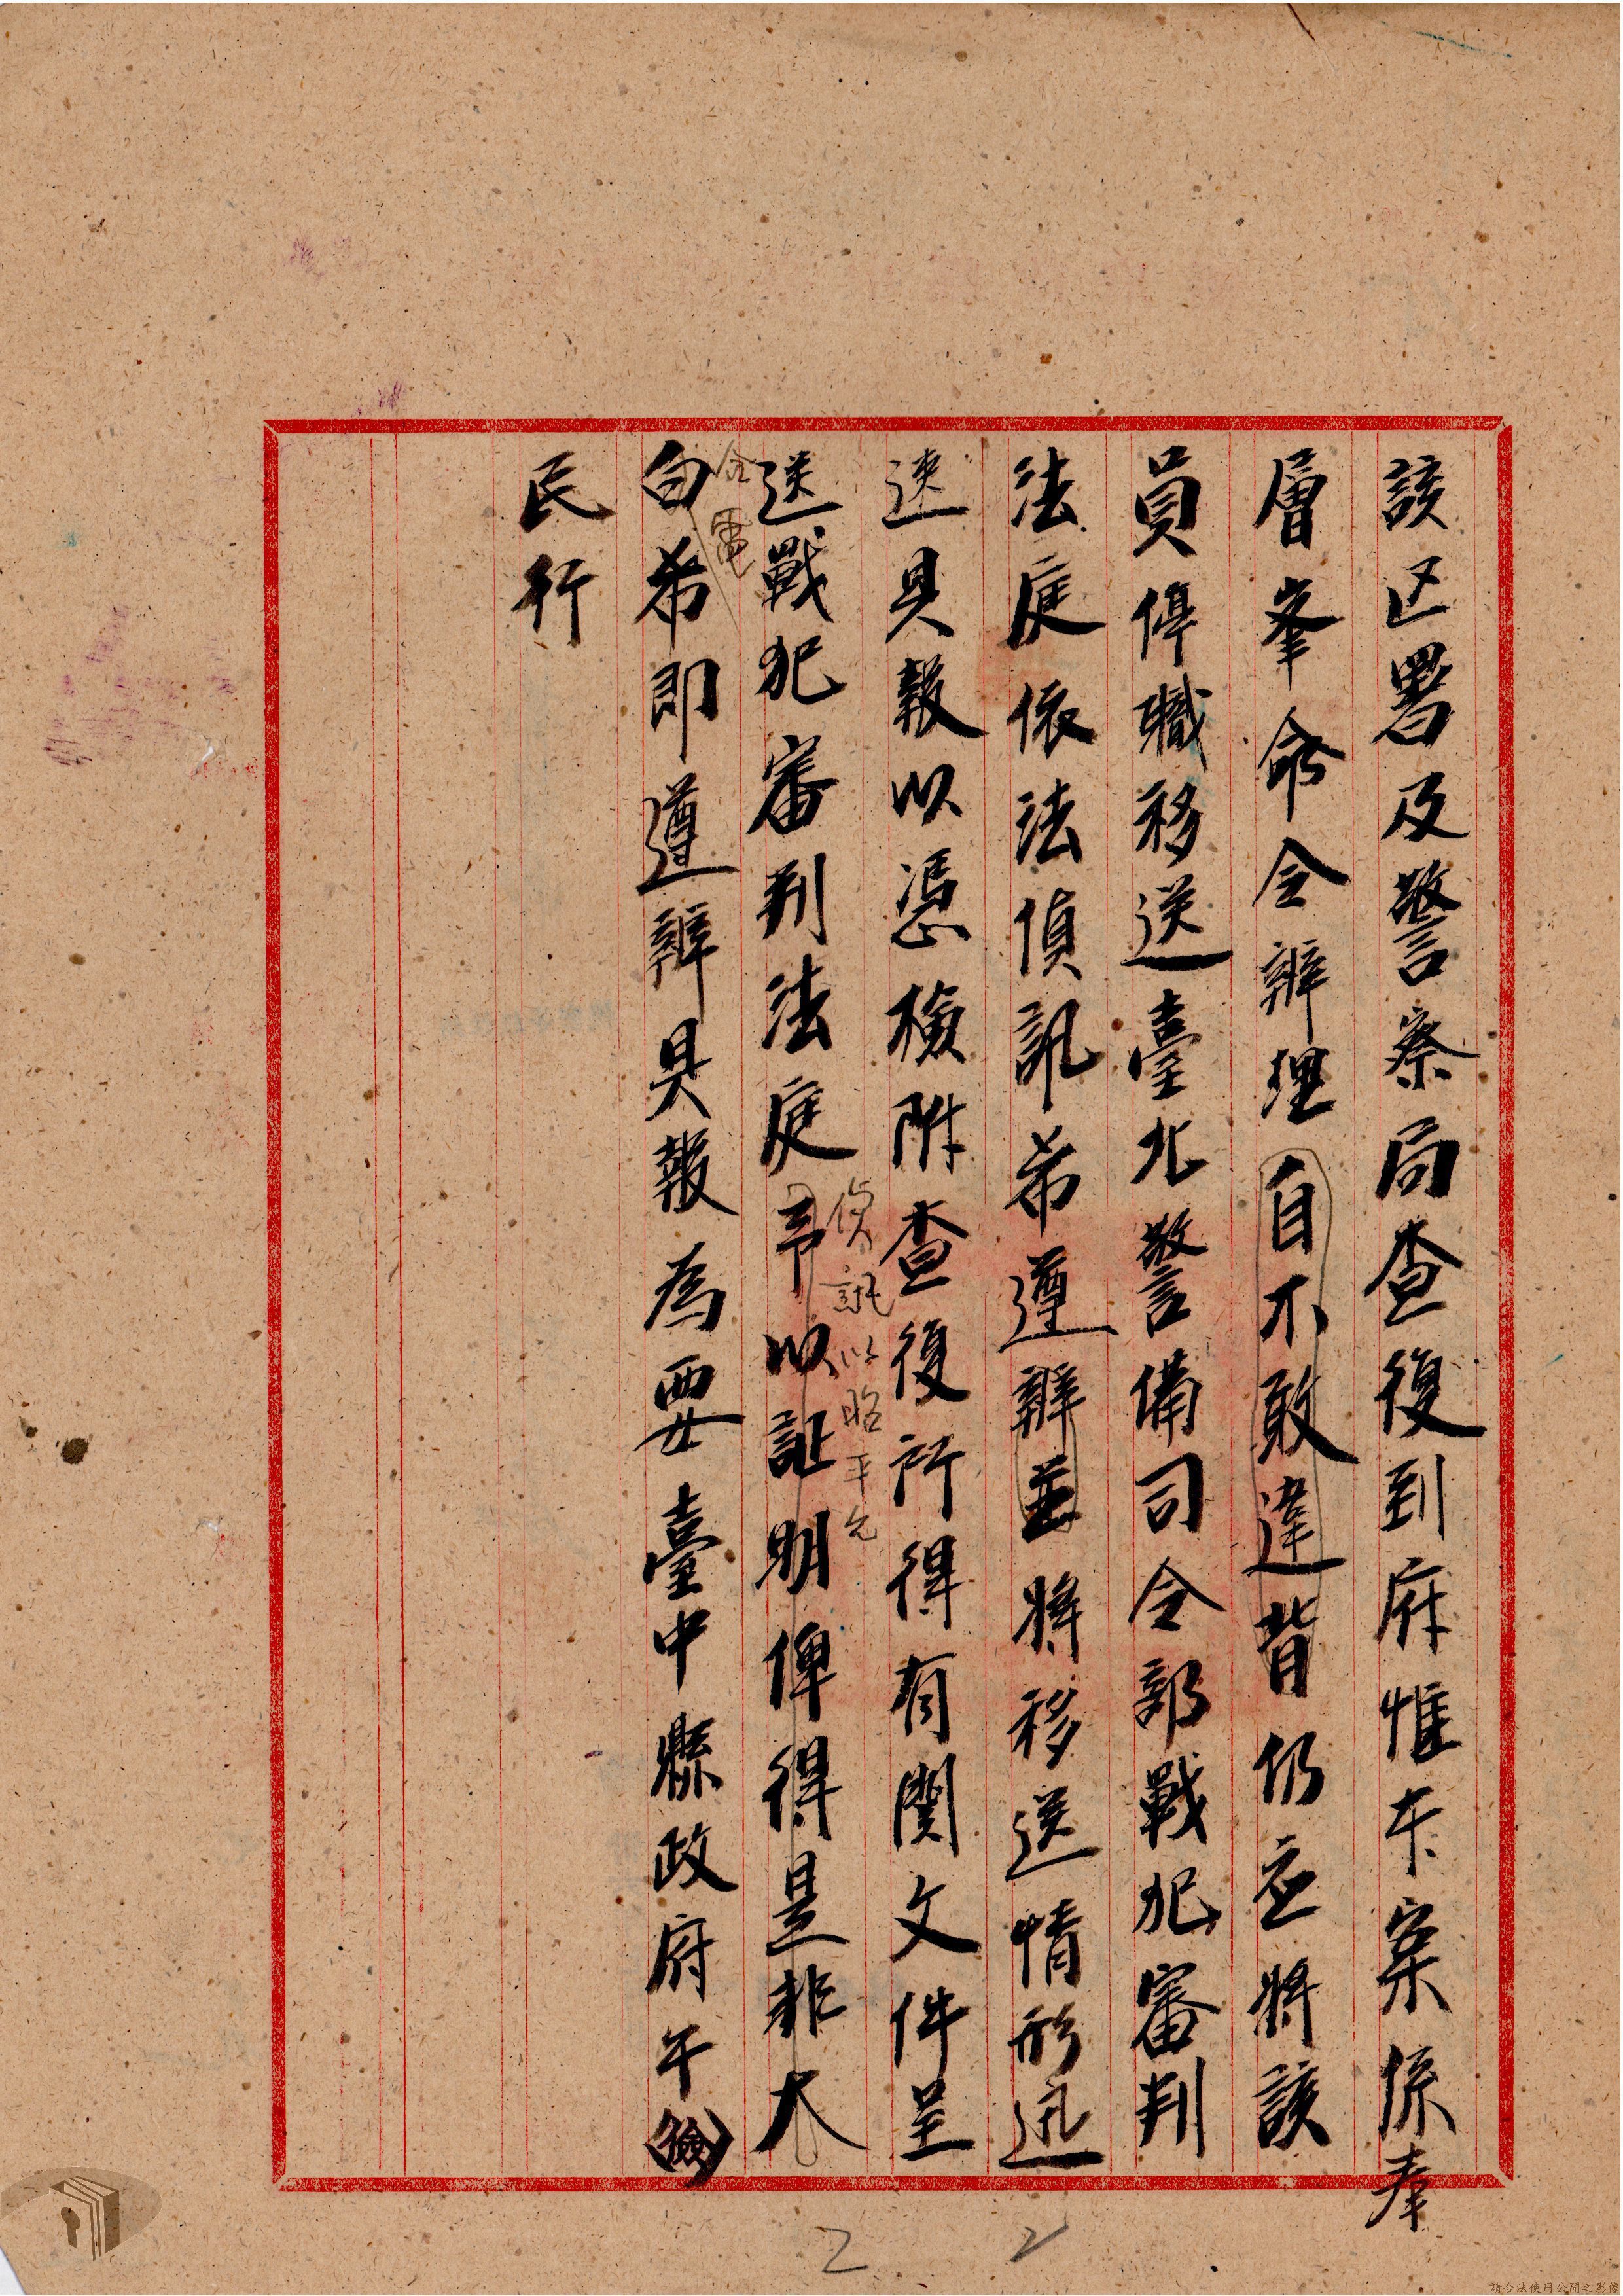 該区署及警察局查復到府惟本案係奉
層峯命令辦理自不敢違背仍应將該
員停職移送臺北警備司令部戰犯審判
法庭依法偵訊希遵辦並將移送情形迅
速具報以憑檢附查復所得有関文件呈
偵訊以昭平允
送戰犯審判法庭予以証明俾得是非大
合電
白希即遵辦具報為要臺中縣政府午(儉)
民行
2 2
請合法使用公開之影像